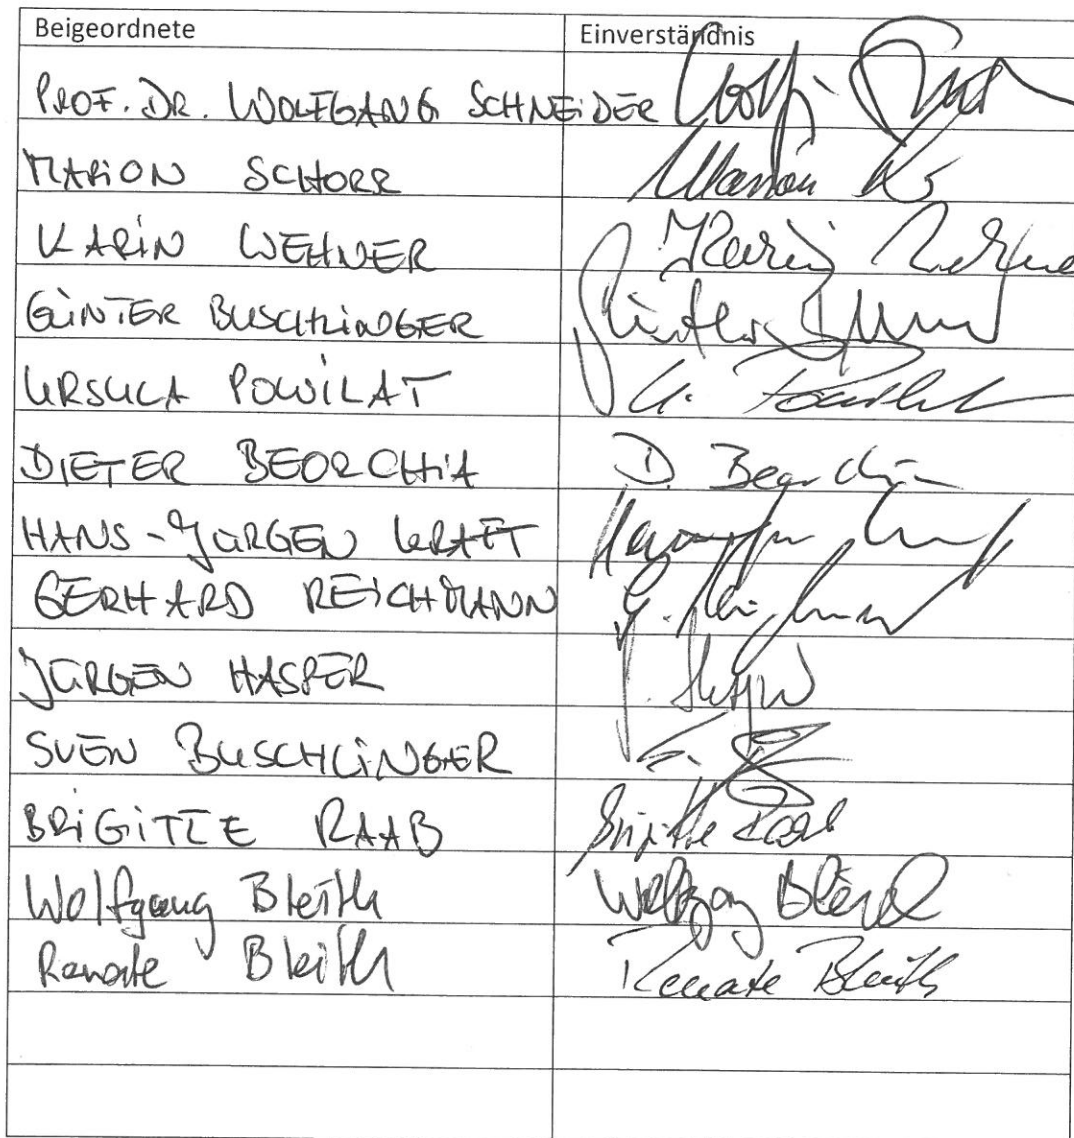 Beigeordnete Einverständnis
PROF. DR. WOLFGANG SCHNEIDER
MARION SCHORR Marion
KARIN WEHNER Karin
GÜNTER BUSCHLINGER Günter
URSULA POWILAT U. Powilat
DIETER BEORCHIA D. Beorchia
HANS-JÜRGEN KRAFT
GERHARD REICHMANN G.
JÜRGEN HASPER J.
SVEN BUSCHLINGER
BRIGITTE RAAB Brigitte Raab
Wolfgang Bleith Wolfgang
Renate Bleith Renate Bleith